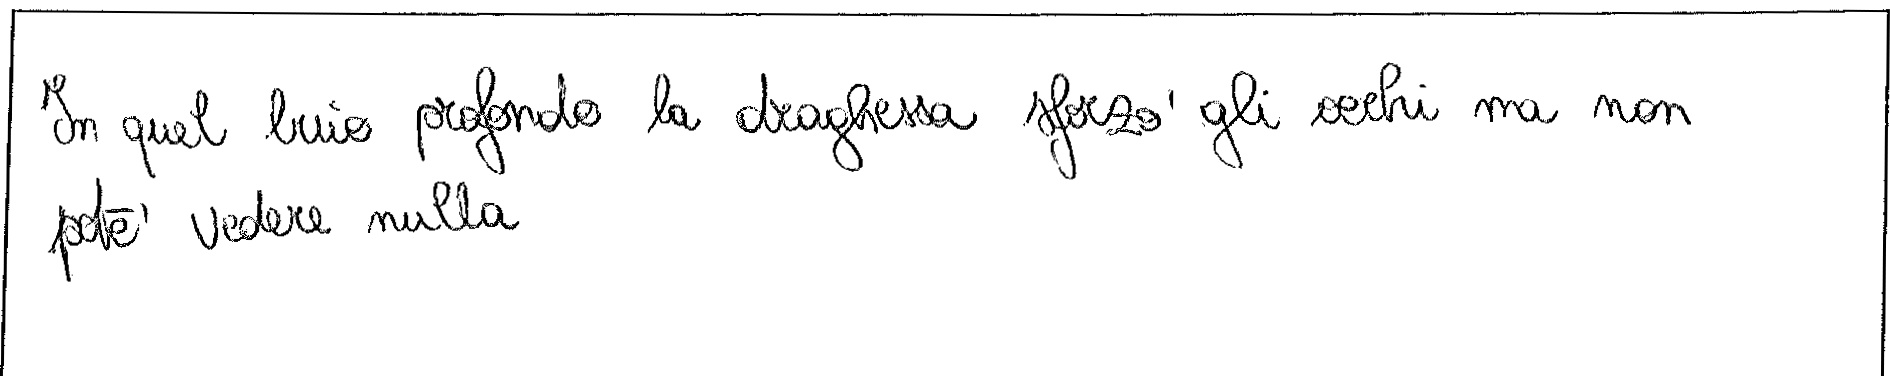 In quel buio profondo la draghessa sforzo' gli occhi ma non
poté' vedere nulla